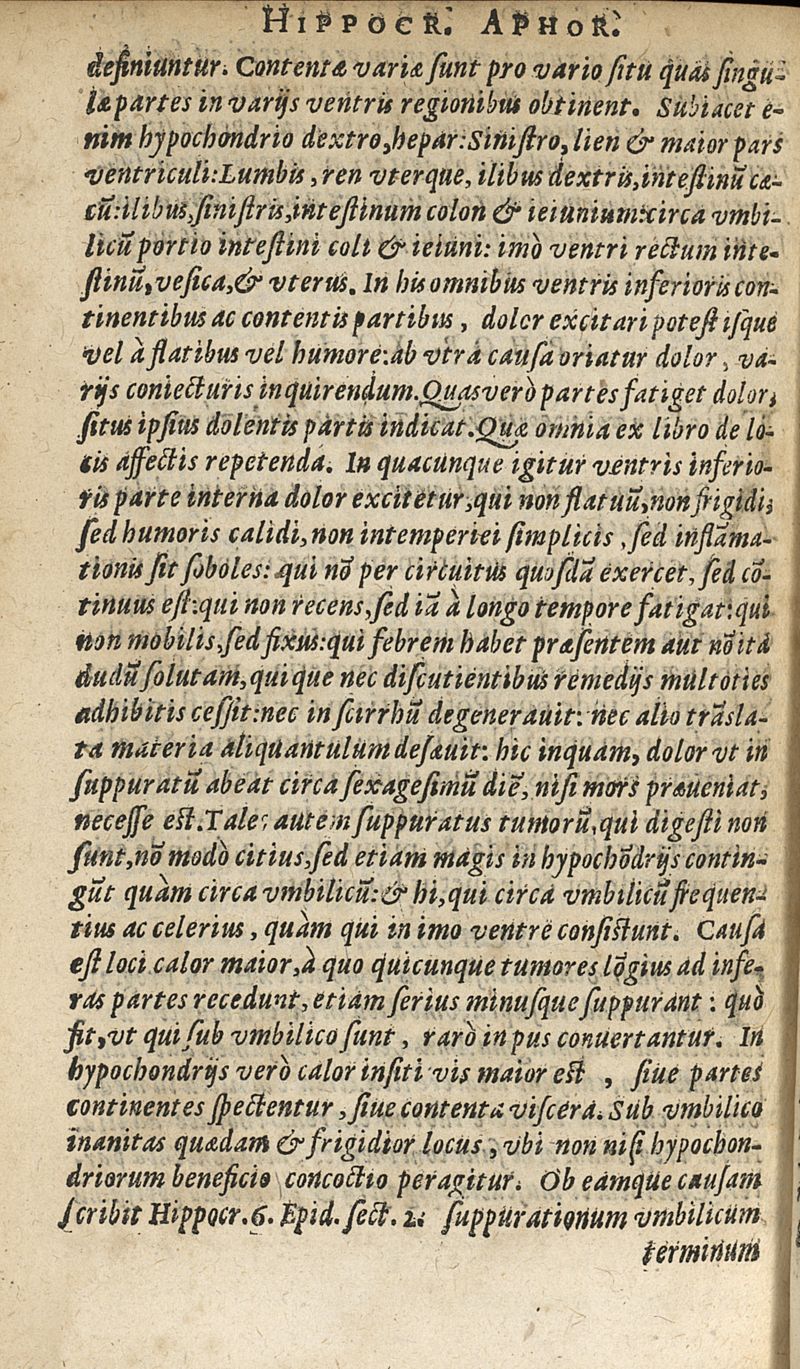 HIPPOCR. APHOR.
definiuntur. Contentæ variæ ſunt pro vario ſitu quas ſingu-
læ partes in varijs ventris regionibus obtinent. Subiacet e-
nim hypochondrio dextro, hepar: Siniſtro, lien & maior pars
ventriculi: Lumbis, ren vterque, ilibus dextris, inteſtinū cæ-
cū: ilibus, ſiniſtris, inteſtinum colon & ieiunium: circa vmbi-
licū portio inteſtini coli & ieiuni: imò ventri rectum inte-
ſtinū, veſica, & vterus. In his omnibus ventris inferioris con-
tinentibus ac contentis partibus, dolor excitari poteſt iſque
vel à flatibus vel humore: ab vtra cauſa oriatur dolor, va-
rijs coniecturis inquirendum. Quas verò partes fatiget dolor,
ſitus ipſius dolentis partis indicat. Quæ omnia ex libro de lo-
cis affectis repetenda. In quacunque igitur ventris inferio-
ris parte interna dolor excitetur, qui non flatuū, non frigidi,
ſed humoris calidi, non intemperiei ſimplicis, ſed inflāma-
tionis ſit ſoboles: qui nō per circuitus quoſdā exercet, ſed cō-
tinuus eſt: qui non recens, ſed iā à longo tempore fatigat: qui
non mobilis, ſed fixus: qui febrem habet præſentem aut nō ita
dudū ſolutam, qui que nec diſcutientibus remedijs multoties
adhibitis ceſſit: nec in ſcirrhū degenerauit: nec alio trāſla-
ta materia aliquantulum deſæuit: hic inquam, dolor vt in
ſuppuratū abeat circa ſexageſimū diē, niſi mors præueniat,
neceſſe eſt. Tales autem ſuppuratus tumorū, qui digeſti non
ſunt, nō modò citius, ſed etiam magis in hypochōdrijs contin-
gūt quàm circa vmbilicū: & hi, qui circa vmbilicū frequen-
tius ac celerius, quàm qui in imo ventre conſiſtunt. Cauſa
eſt loci calor maior, à quo quicunque tumores lōgius ad infe-
ras partes recedunt, etiam ſerius minuſque ſuppurant: quò
fit, vt qui ſub vmbilico ſunt, rarò in pus conuertantur. In
hypochondrijs verò calor inſiti vis maior eſt, ſiue partes
continentes ſpectentur, ſiue contenta viſcera. Sub vmbilico
inanitas quædam & frigidior locus, vbi non niſi hypochon-
driorum beneficio concoctio peragitur. Ob eamque cauſam
ſcribit Hippocr. 6. Epid. ſect. 2. ſuppurationum vmbilicum
terminum